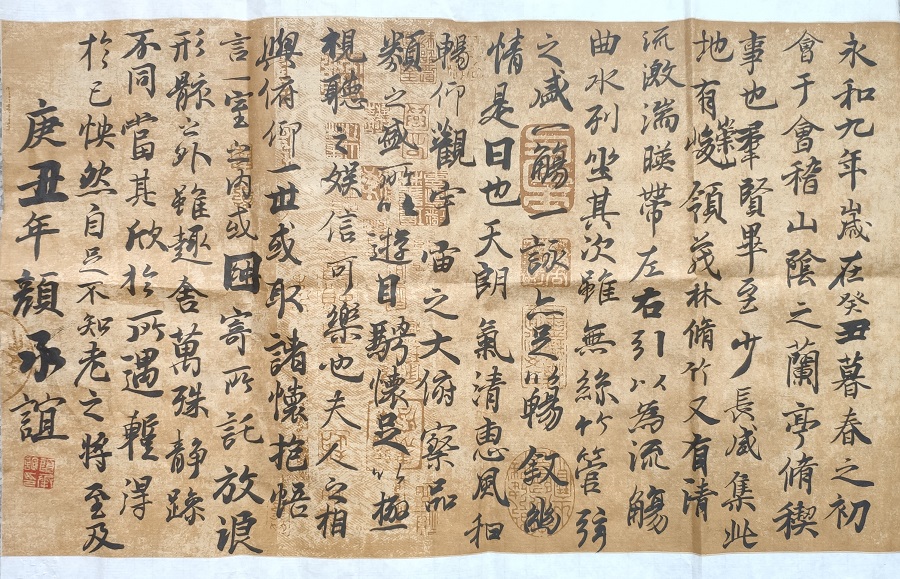 永和九年歲在癸丑暮春之初
會于會稽山陰之蘭亭脩稧
事也羣賢畢至少長咸集此
地有崇山峻領茂林脩竹又有清
流激湍暎帶左右引以為流觴
曲水列坐其次雖無絲竹管弦
之盛一觴一詠亦足以暢敘幽
情是日也天朗氣清惠風和
暢仰觀宇宙之大俯察品
類之盛所以遊目騁懷足以極
視聽之娛信可樂也夫人之相
與俯仰一世或取諸懷抱悟
言一室之內或因寄所託放浪
形骸之外雖趣舍萬殊靜躁
不同當其欣於所遇蹔得
於己怏然自足不知老之將至及
庚丑年顏承誼